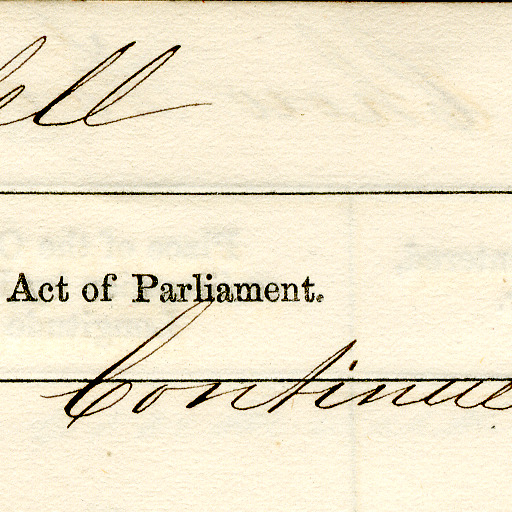 ell
Act of Parliament.
Continue